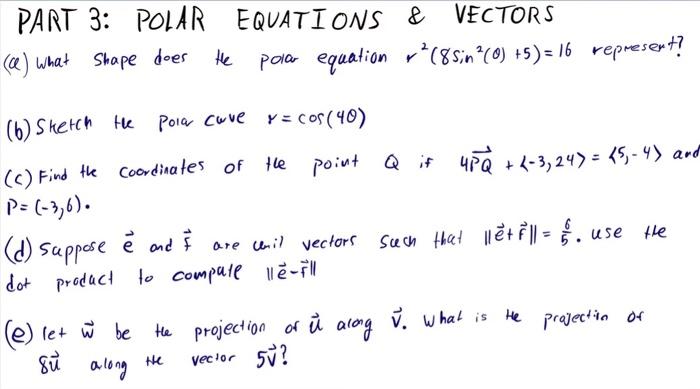 PART 3: POLAR EQUATIONS & VECTORS
(a) What Shape does the polar equation r²(8sin²(θ) +5)=16 represent?
(b) Sketch the Polar Curve r = cos(4θ)
(c) Find the Coordinates of the point Q if 4PQ⃗ + ⟨-3,24⟩ = ⟨5,-4⟩ and
P=(-3,6).
(d) Suppose e⃗ and f⃗ are unit vectors such that ||e⃗+f⃗|| = 6/5. use the
dot product to compute ||e⃗-f⃗||
(e) let w⃗ be the projection of u⃗ along v⃗. What is the projection of
8u⃗ along the vector 5v⃗?